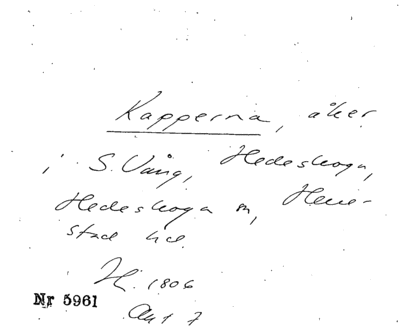 Kapperna, åker
i S. Vång, Hedeskoga,
Hedeskoga sn, Herre-
stad hd.
H. 1806
Akt 7
Nr 5961